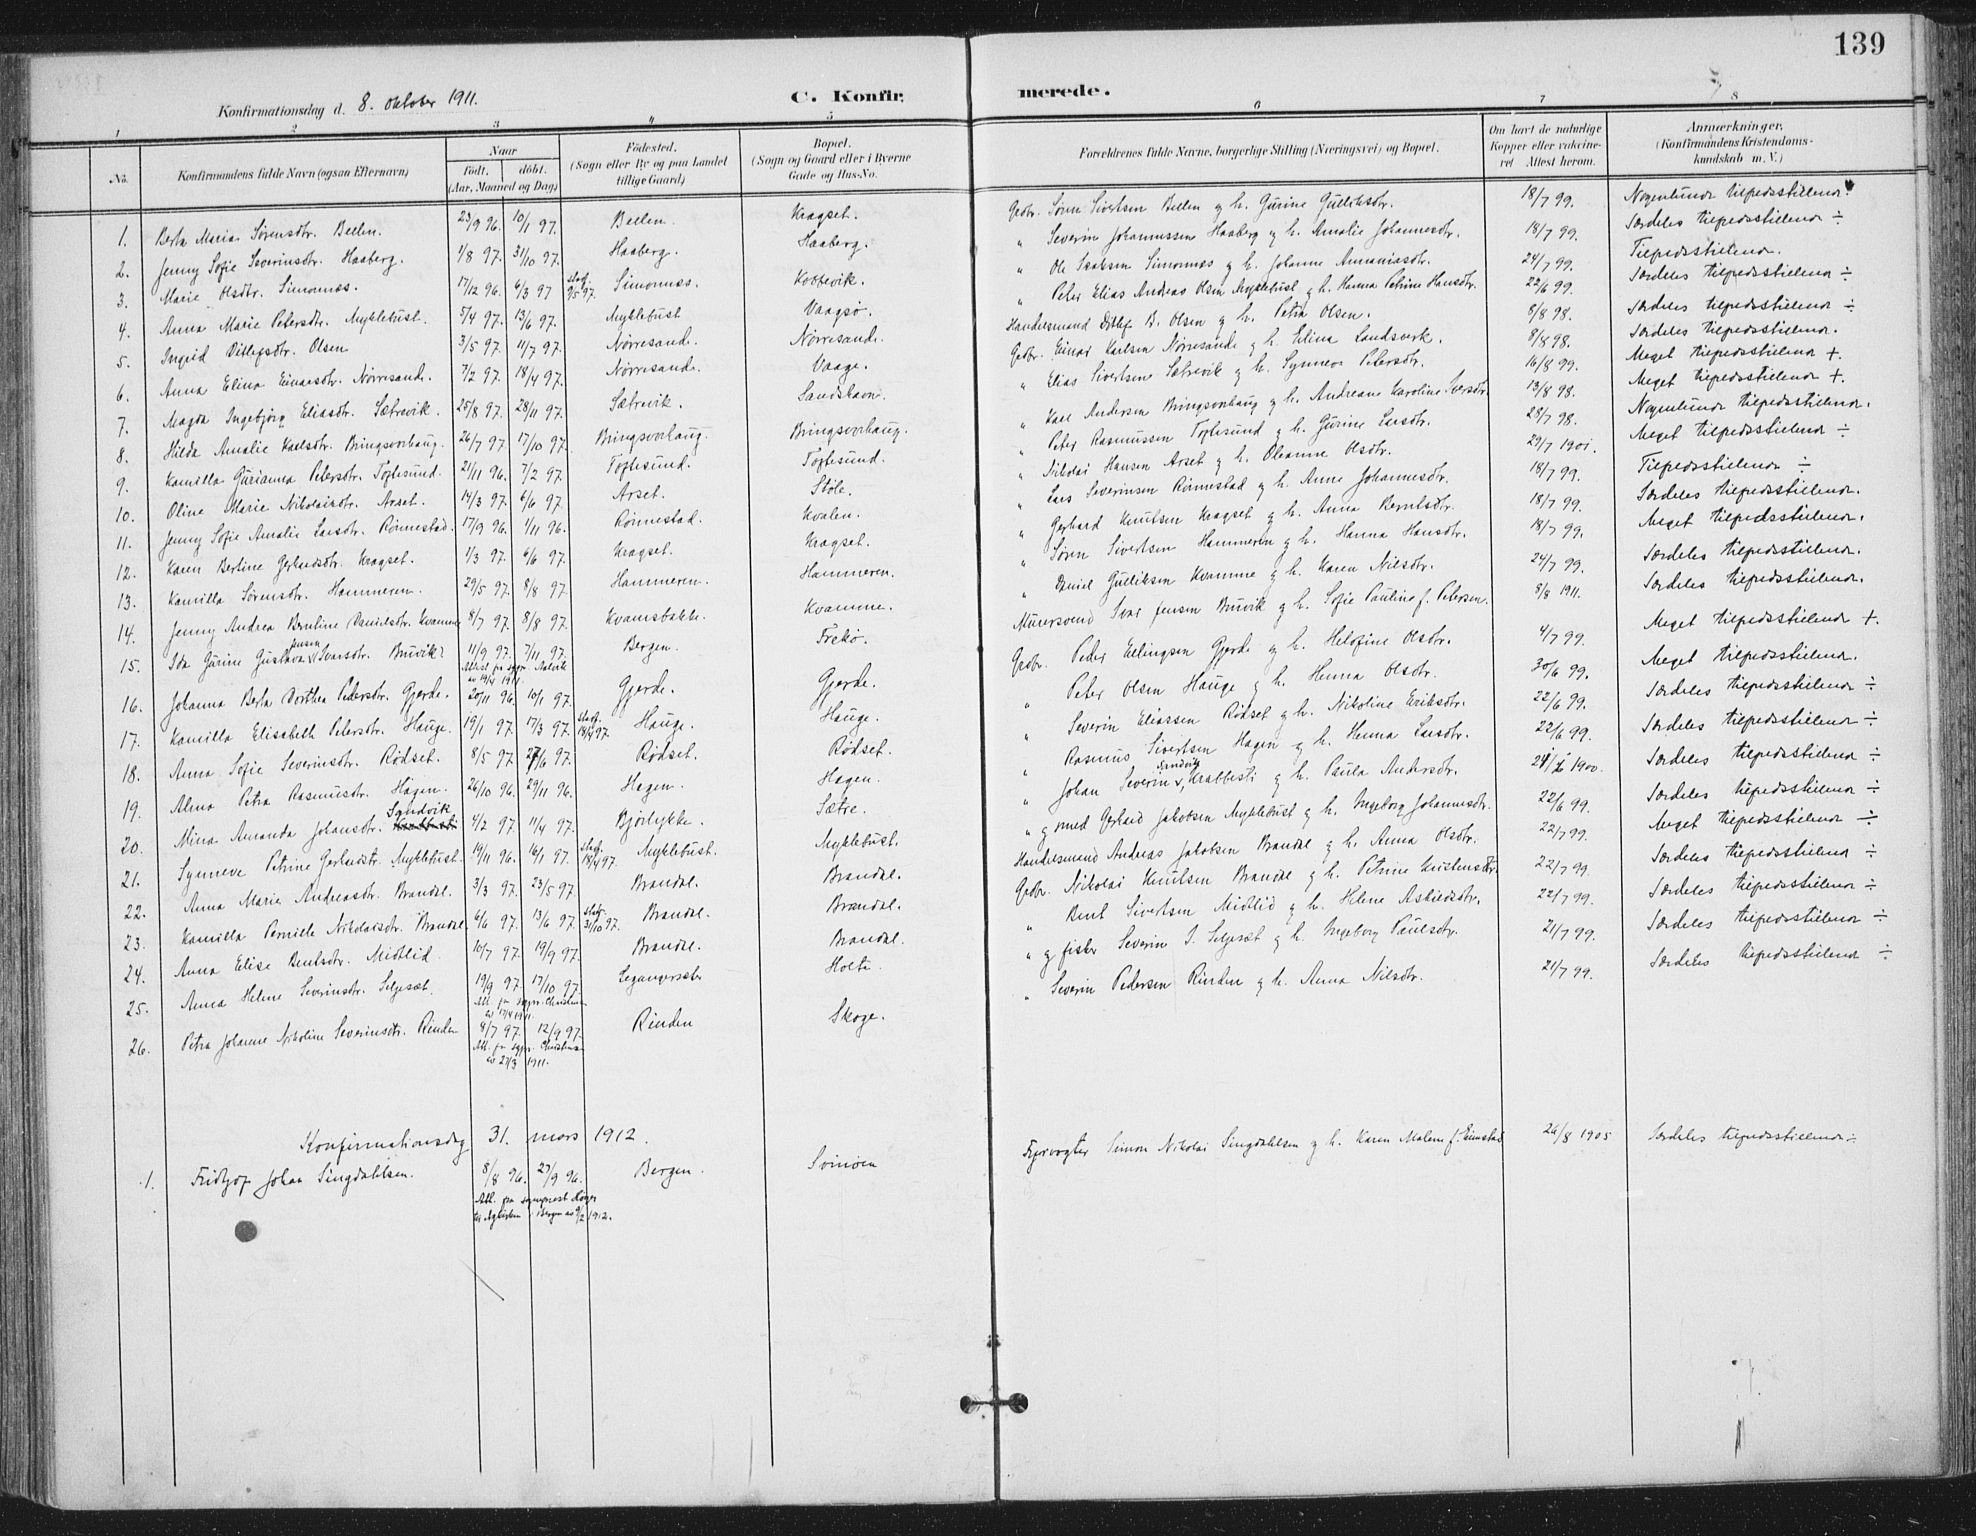 139
Konfirmationsdag d. 8. oktober 1911. C. Konfirmerede.
1 2 3 4 5 6 7 8
No. Konfirmandens fulde Navn (ogsaa Efternavn) Naar födt. döbt. (Aar, Maaned og Dag) Födested. (Sogn eller By og paa Landet tillige Gaard) Bopæl. (Sogn og Gaard eller i Byerne Gade og Hus-No. Forældrenes fulde Navne, borgerlige Stilling (Næringsvei) og Bopæl. Om havt de naturlige Kopper eller vaccineret Attest herom. Anmærkninger. (Konfirmandens Kristendomskundskab m. V.)
1. Berta Maria Sørensdtr. Bellen. 23/9 96. 10/1 97. Bellen. Kragset. Grdbr. Sören Sivertsen Bellen og h. Gurine Gulliksdtr. 18/7 99. Nogenlunde tilfredsstillende
2. Jenny Sofie Severinsdtr. Haaberg. 1/8 97. 31/10 97. Haaberg. Haaberg. " Severin Johannessen Haaberg og h. Amalie Johannesdtr. 18/7 99. Særdeles tilfredsstillende ÷
3. Marie Olsdtr. Simonnes. 17/12 96. 6/3 97 Stadf. 9/5 97. Simonnes. Kobbevik. " Ole Isaksen Simonnes og h. Johanne Annaniasdtr. 24/7 99. Tilfredsstillende.
4. Anna Marie Petersdtr. Myklebust. 5/4 97. 13/6 97. Myklebust Vaagsø. " Peter Elias Andreas Olsen Myklebust og h. Hanna Petrine Hansdtr. 22/6 99. Særdeles tilfredsstillende ÷
5. Ingrid Ditlefsdtr. Olsen 3/5 97. 11/7 97. Nørresand. Nørresand. Handelsmand Ditlef B. Olsen og h. Petra Olsen. 8/8 98. Særdeles tilfredsstillende ÷
6. Anna Elina Einarsdtr. Nörresande. 7/2 97. 18/4 97. Nørresand. Vaage. Grdbr. Einar Karlsen Nörresande og h. Elina Landsverk. 8/8 98. Særdeles tilfredsstillende.
7. Magda Ingebjörg Eliasdtr. Sætrevik. 25/8 97. 28/11 97. Sætrevik. Sandshavn. " Elias Sivertsen Sætrevik og h. Synneve Petersdtr. 16/8 99. Meget tilfredsstillende +.
8. Hilda Amalie Karlsdtr. Bringsvorhaug. 26/7 97. 17/10 97. Bringsvorhaug. Bringsvorhaug. " Karl Andersen Bringsvorhaug og h. Andreane Karoline Iversdtr. 13/8 98. Meget tilfredsstillende +.
9. Kamilla Gurianna Petersdtr. Toftesund. 21/11 96. 7/2 97. Toftesund. Toftesund. " Peter Rasmussen Toftesund og h. Gurine Larsdtr. 28/7 98. Nogenlunde tilfredsstillende.
10. Oline Marie Nikolaisdtr. Arset. 14/3 97. 6/6 97. Arset. Støle. " Nikolai Hansen Arset og h. Oleanne Olsdtr. 29/7 1901. Meget tilfredsstillende ÷
11. Jenny Sofie Amalie Larsdtr. Rönnestad. 17/9 96. 1/11 96. Rönnestad. Kvalen. " Lars Severinsen Rönnestad og h. Anne Johannesdtr. 18/7 99. Tilfredsstillende ÷
12. Karen Bertine Gerhardsdtr. Kragset. 1/3 97. 6/6 97. Kragset. Kragset. " Gerhard Knutsen Kragset og h. Anna Berntsdtr. 18/7 99. Særdeles tilfredsstillende.
13. Kamilla Sörensdtr. Hammeren. 29/5 97. 8/8 97. Hammeren. Hammeren. " Sören Sivertsen Hammeren og h. Hanna Hansdtr. 18/7 99. Meget tilfredsstillende.
14. Jenny Andrea Berntine Danielsdtr. Kvamme 8/7 97. 8/8 97. Kvamsbakke. Kvamme. " Daniel Gulliksen Kvamme og h. Karen Nilsdtr. 24/7 99. Særdeles tilfredsstillende.
15. Ida Gurine Gustava Jensen Ivarsdtr. Buvik 11/9 97. 7/11 97. Bergen. Frekö. Murersvend Ivar Jensen Buvik og h. Sofie Pauline f. Petersen. 8/8 1911. Særdeles tilfredsstillende.
16. Johanna Berta Dorthea Pedersdtr. Gjerde. 20/11 96. 10/1 97. Gjerde. Gjerde. Grdbr. Peder Erlingsen Gjerde og h. Helofine Olsdtr. 4/7 99. Meget tilfredsstillende +.
17. Kamilla Elisabeth Petersdtr. Hauge. 19/1 97. 17/3 97. Stadf. 18/4 97. Hauge. Hauge. " Peter Olsen Hauge og h. Henna Olsdtr. 30/6 99. Meget tilfredsstillende.
18. Anna Sofie Severinsdtr. Rödset. 8/5 97. 27/6 97. Rødset. Rødset. " Severin Eliassen Rødset og h. Nikoline Eriksdtr. 22/6 99. Særdeles tilfredsstillende ÷
19. Alma Petra Rasmusdtr. Hagen. 26/10 96. 29/11 96. Hagen. Hagen. " Rasmus Sivertsen Hagen og h. Henna Larsdtr. 22/6 99. Særdeles tilfredsstillende ÷
20. Mina Amanda Johansdtr. Sandvik 4/2 97. 11/4 97. Bjørlykke. Sætre. " Johan Severin Sandvik Krabbesti og h. Paula Andersdtr. 1900. Særdeles tilfredsstillende ÷
21. Synneve Petrine Gerhardsdtr. Myklebust. 19/11 96. 16/1 97. Stadf. 18/4 97. Myklebust. Myklebust. " og smed Gerhard Jakobsen Myklebust og h. Ingeborg Johannesdtr. 22/6 99. Særdeles tilfredsstillende ÷
22. Anna Marie Andreasdtr. Brandal. 3/3 97. 23/5 97 Brandal. Brandal. Handelsmand Andreas Jakobsen Brandal og h. Anna Olsdtr. 22/7 99. Meget tilfredsstillende ÷
23. Kamilla Pernille Nikolaisdtr. Brandal. 6/6 97. 13/6 97. Stadf. 31/10 97. Brandal. Brandal. Grdbr. Nikolai Knutsen Brandal og h. Petrine Kristensdtr. 22/7 99. Særdeles tilfredsstillende ÷
24. Anna Elise Berntsdtr. Midtlid. 10/7 97. 19/9 97. Brandal. Brandal. " Bernt Sivertsen Midtlid og h. Helene Askildsdtr. 22/7 99. Særdeles tilfredsstillende ÷
25. Anna Helene Severinsdtr. Seljesæt. 19/9 97. 17/10 97. Holte. " og fisker Severin I. Seljesæt og h. Ingeborg Paulsdtr. 21/7 99. Særdeles tilfredsstillende ÷
Att. fra sogpr. Christensen av 17/4 1911.
26. Petra Johanne Nikoline Severinsdtr. Rinden 8/7 97. 12/9 97. Rinden Skoge. " Severin Pedersen Rinden og h. Anna Nilsdtr. 21/7 99. Særdeles tilfredsstillende ÷
Att. fra sogpr. Christensen av 27/3 1911.
Konfirmationsdag 31. mars 1912.
1. Fridtjof Johan Singdahlsen. 8/8 96. 27/9 96. Bergen. Svinöen Fyrvogter Simon Nikolai Singdahlsen og h. Karen Malene f. Eimstad 26/8 1905 Særdeles tilfredsstillende ÷
Att. fra sogneprest i Bergen av 9/2 1912.